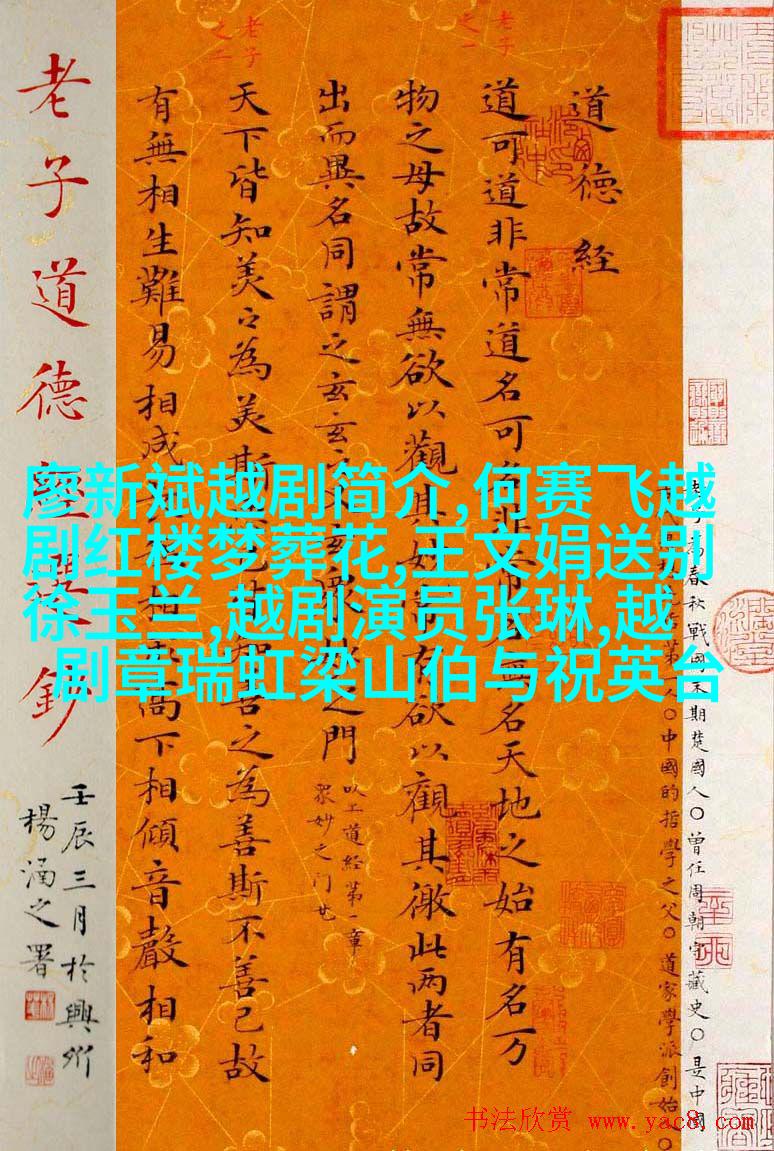 廖新斌越剧简介,何赛飞越
剧红楼梦葬花,王文娟送别
徐玉兰,越剧演员张琳,越
剧章瑞虹梁山伯与祝英台
為春秋戰國末期楚國人〇曾任周朝守藏史〇是中國
第一人〇中國的哲學之父〇道家學派創始人〇
道德經
老子
之一
道可道非常道名可名非常名無名天地之始有名万
物之母故常無欲以觀其妙常有欲以觀其徼此两者同
出而異名同謂之玄玄之門
以上道經第一章
衆妙之门
老子
之二
天下皆知美々為美斯善之為善斯不善已故
有無相生難易相成高下相傾音聲相和
老子道德經鈔
壬辰三月於興
楊涵之署
书法欣赏 www.yac8.com